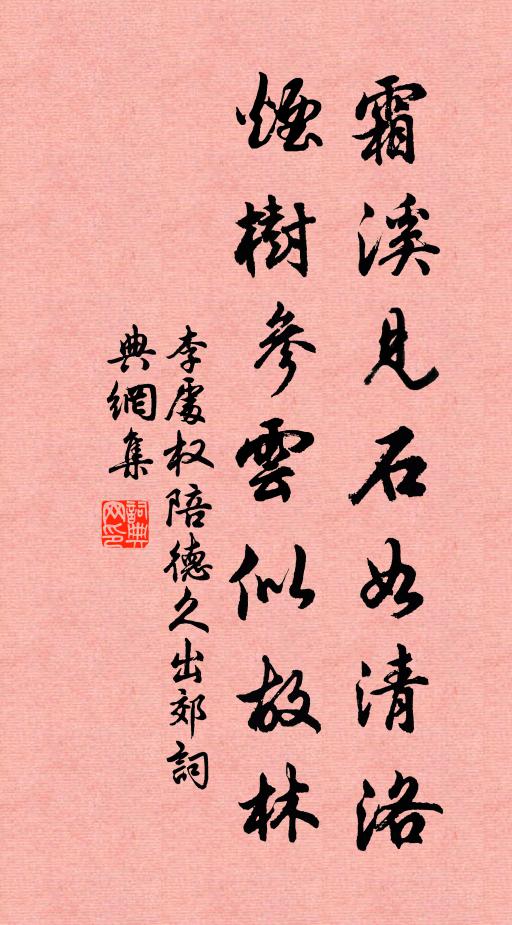 霜溪見石如清洛
煙樹參雲似故林
李處权陪德久出郊詞
典網集
詞典
网印